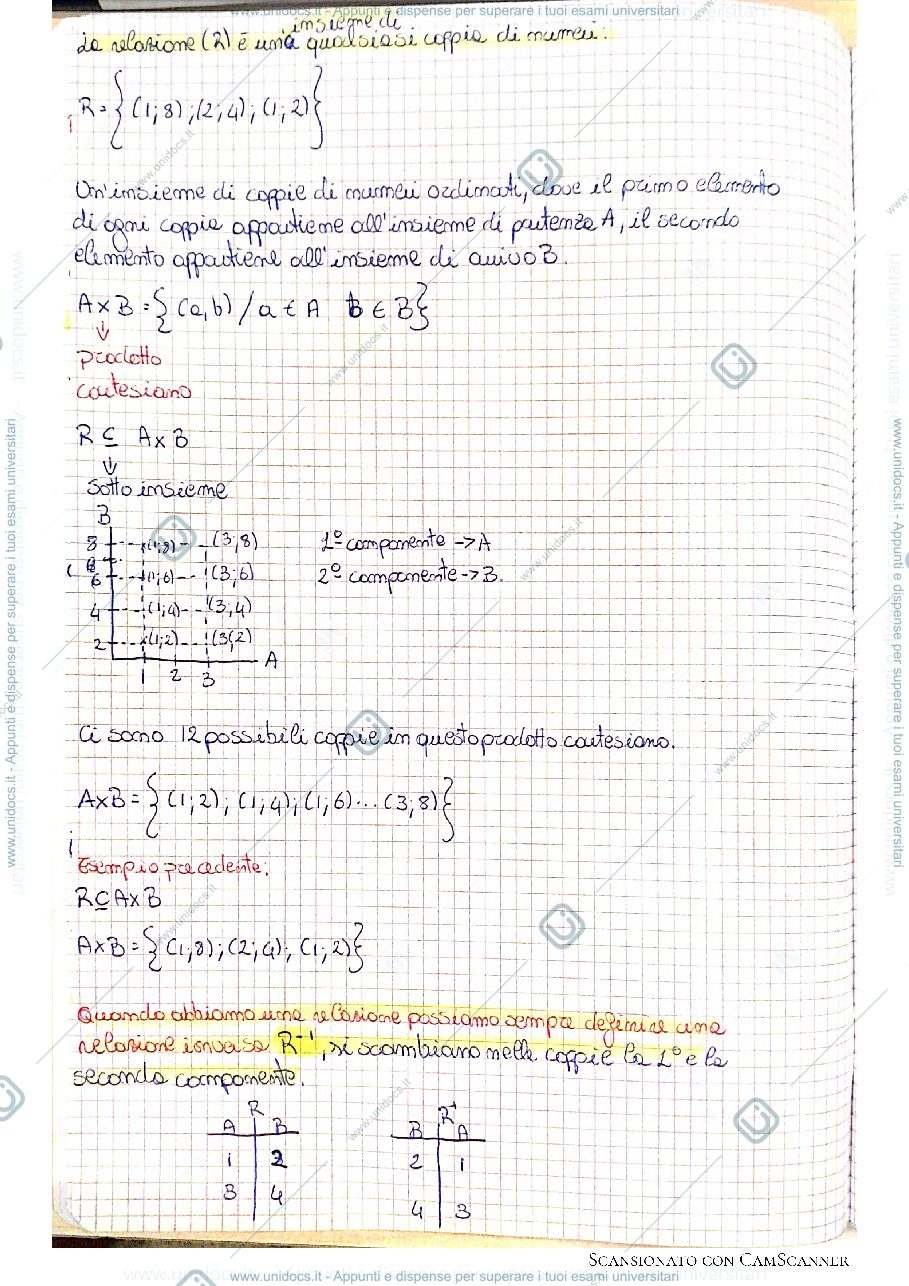 www.unidocs.it - Appunti e dispense per superare i tuoi esami universitari
insieme di
La relazione (2) è una qualsiasi coppia di numeri:
R = { (1;8) ; (2;4) ; (1;2) }
Un'insieme di coppie di numeri ordinati, dove il primo elemento
di ogni coppia appartiene all'insieme di partenza A, il secondo
elemento appartiene all'insieme di arrivo B.
A x B = { (a,b) / a ∈ A b ∈ B }
↓
prodotto
cartesiano
R ⊆ A x B
↓
Sotto insieme
B
8 (1;8) (3;8) 1º componente -> A
6 (1;6) (3;6) 2º componente -> B.
4 (1;4) (3;4)
2 (1;2) (3;2)
A
1 2 3
Ci sono 12 possibili coppie in questo prodotto cartesiano.
AxB = { (1;2) ; (1;4) ; (1;6) ... (3;8) }
Esempio precedente:
R ⊆ A x B
AxB = { (1;8) ; (2;4) ; (1;2) }
Quando abbiamo una relazione possiamo sempre definire una
relazione isnversa R⁻¹, si scambiano nelle coppie la 1º e la
seconda componente.
R R⁻¹
A B B A
1 2 2 1
3 4 4 3
SCANSIONATO CON CAMSCANNER
www.unidocs.it - Appunti e dispense per superare i tuoi esami universitari